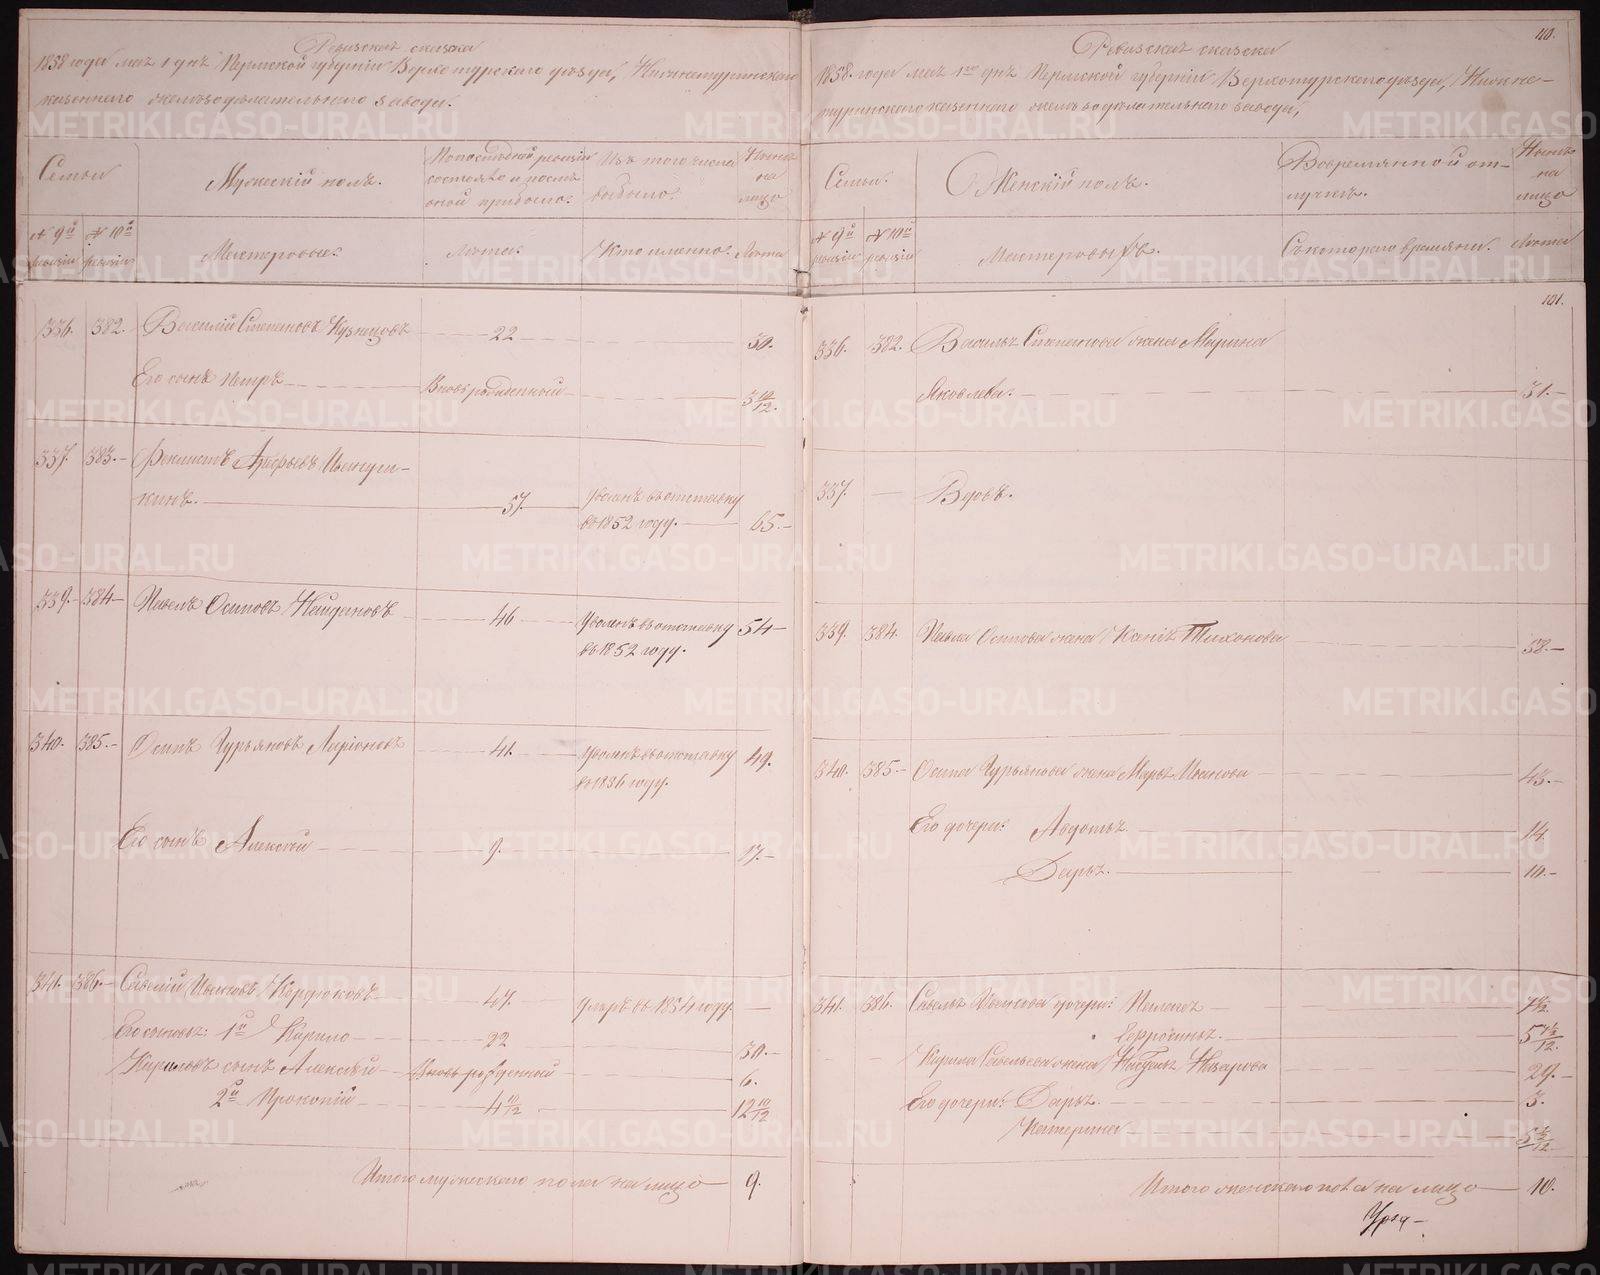 Ревизская сказка
1858 года мая 1 дня Пермской губернии Верхотурского уѣзда, Нижнетуринскаго
казеннаго желѣзодѣлательнаго завода.
Семьи
Мужескій полъ.
По послѣдней ревизіи состояло и послѣ оной прибыло:
Изъ того числа выбыло:
Нынѣ на лицо
№ 9й ревизіи
№ 10й ревизіи
Мастеровые:
Лѣта:
Кто именно:
Лѣта
336. 382. Василій Степановъ Кузнецовъ 22 30.
Его сынъ Петръ Вновь рожденный 3 10/12.
337. 383. Арефьевъ
кинъ. 57. Уволенъ въ отставку
въ 1852 году. 65.
339. 384 Павелъ Осиповъ Найдановъ 46 Уволенъ въ отставку 54
въ 1852 году.
340. 385. Осипъ Гурьяновъ Ларіоновъ 41. Уволенъ въ отставку 49.
въ 1836 году.
Его сынъ Алексѣй 9. 17.
341. 386. Савелій Ивановъ 47. Умеръ въ 1854 году.
Его сыновья: 1й Кирило 22 30.
Кириловъ сынъ Алексѣй Вновь рожденный 6.
2й Прокопій 4 10/12 12 10/12
Итого мужескаго пола на лицо 9.
110.
Ревизская сказка
1858 года мая 1го дня Пермской губерніи Верхотурскаго уѣзда, Нижне-
туринскаго казеннаго желѣзодѣлательнаго завода,
Семьи.
Женскій полъ.
Во временной от-
лучкѣ.
Нынѣ на лицо
№ 9й ревизіи
№ 10й ревизіи
Мастеровыхъ.
Съ котораго времяни.
Лѣта
101.
336. 382. Василья Степанова жена Марина
Яковлева. 31.
337. Вдовъ.
339. 384. Павла Осипова жена Ксенія Тихонова 58.
340. 385. Осипа Гурьянова жена Марья Иванова 43.
Его дочери: Авдотья 14.
Дарья. 10.
341. 386. Савелья Иванова дочери: Пелагея
Евфросинья.
Кирила Савельева жена Назарова 29.
Его дочери: Дарья. 3.
Катерина
Итого женскаго пола на лицо 10.